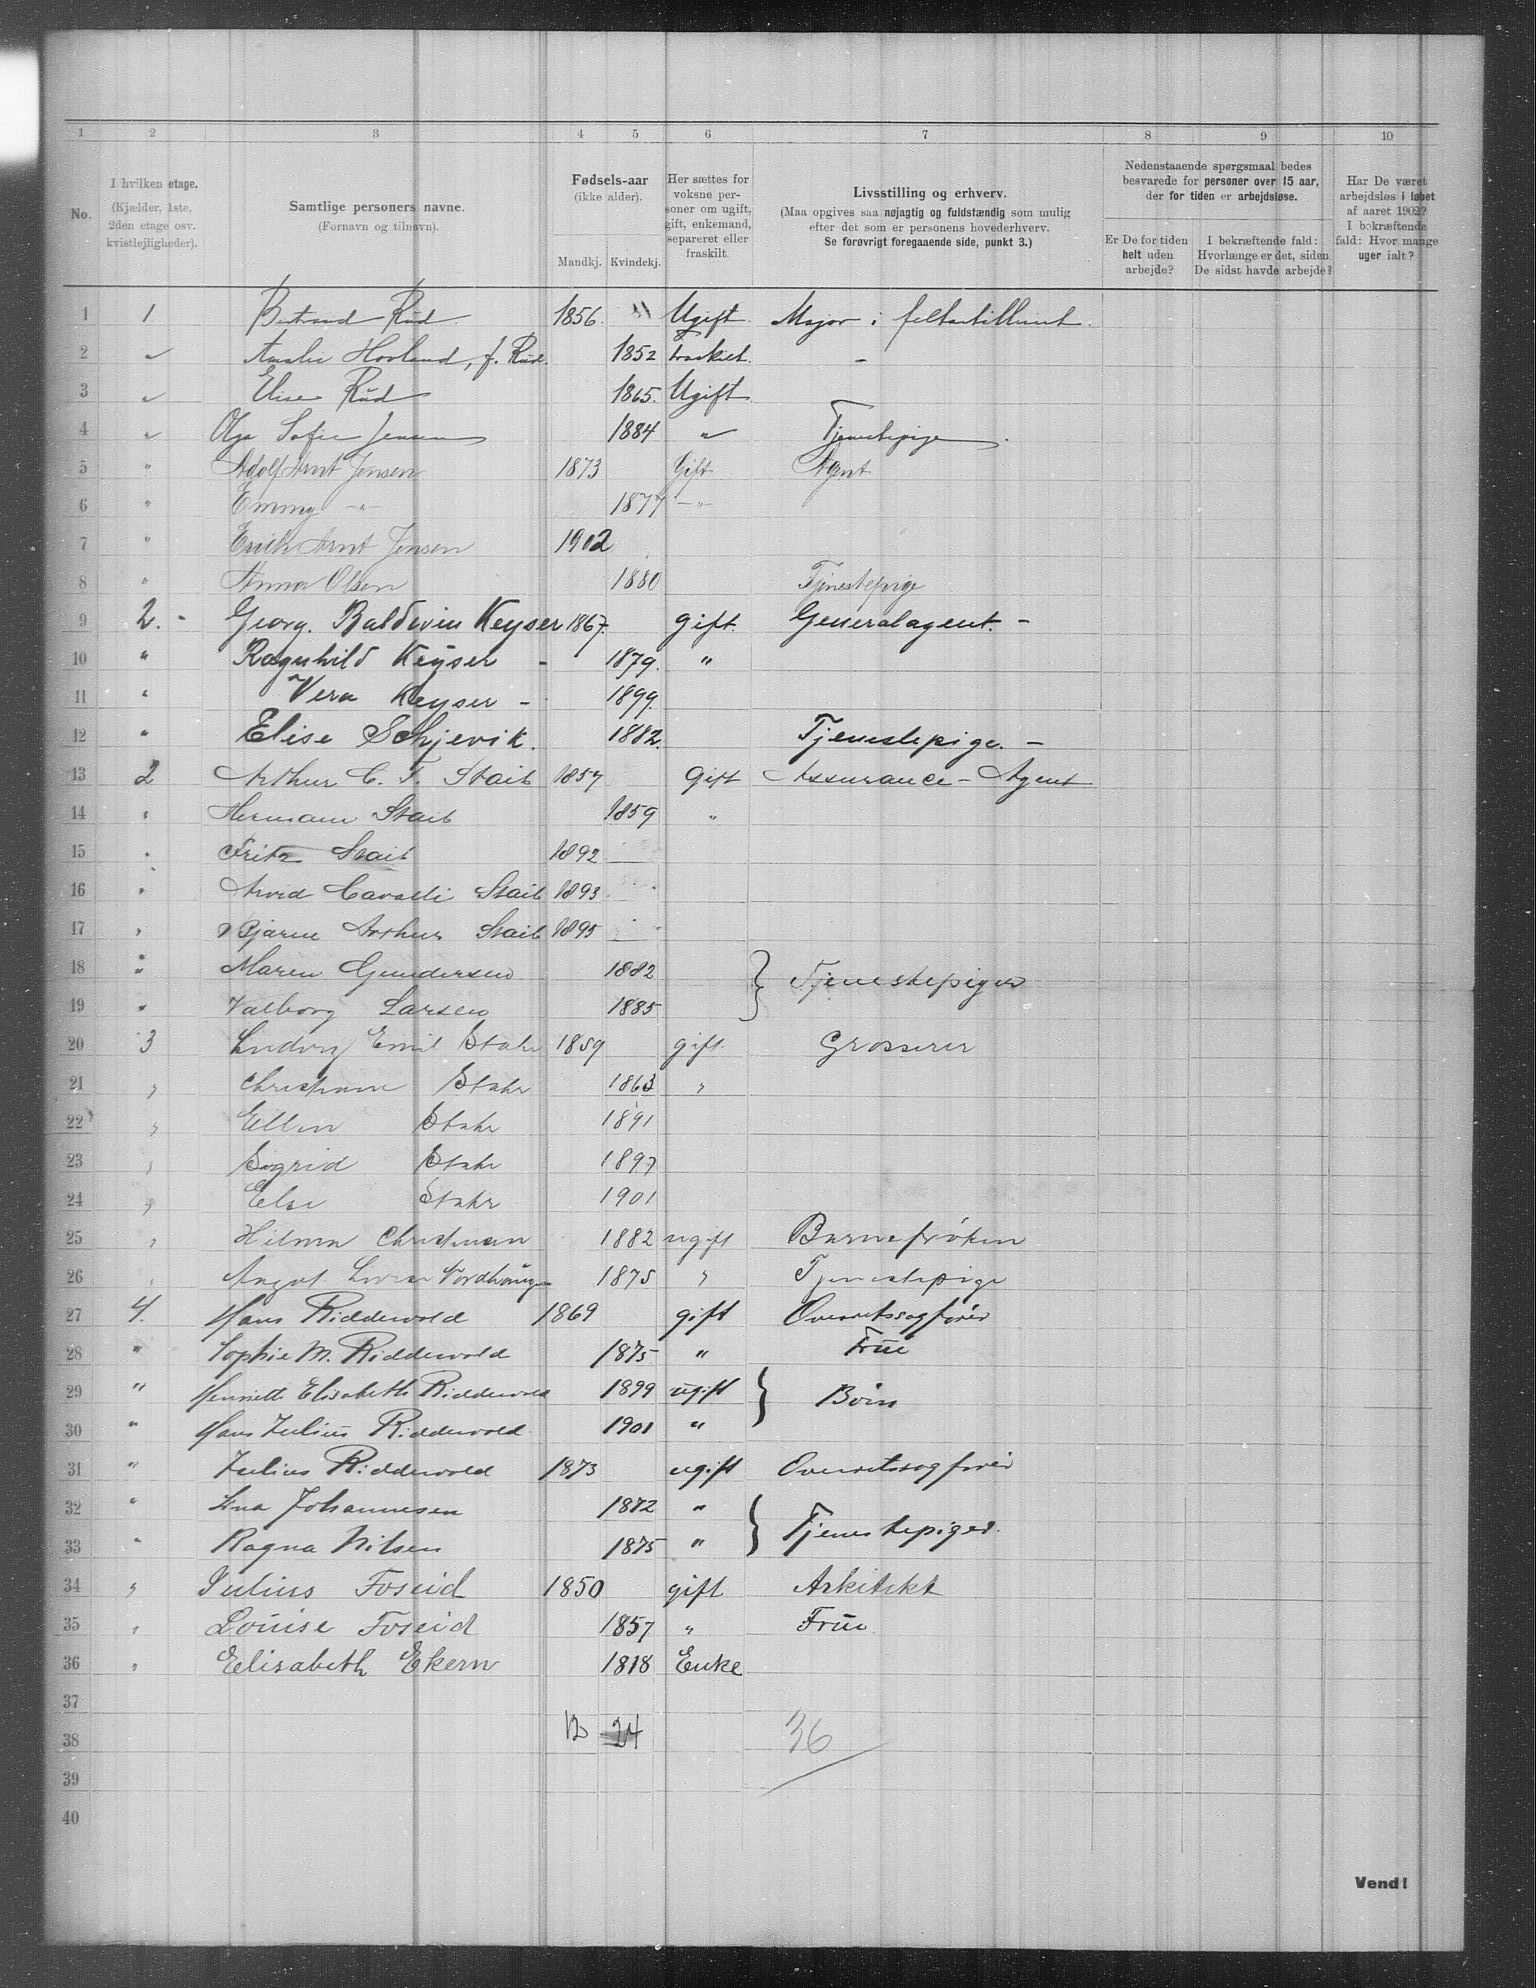 1 2 3 4 5 6 7 8 9 10
No.
I hvilken etage.
(Kjælder, 1ste, 2den etage osv. kvistlejligheder).
Samtlige personers navne.
(Fornavn og tilnavn).
Fødsels-aar
(ikke alder).
Mandkj. Kvindekj.
Her sættes for voksne personer om ugift, gift, enkemand, separeret eller fraskilt.
Livsstilling og erhverv.
(Maa opgives saa nøjagtig og fuldstændig som mulig efter det som er personens hovederhverv.
Se forøvrigt foregaaende side, punkt 3.)
Nedenstaaende spørgsmaal bedes besvarede for personer over 15 aar, der for tiden er arbejdsløse.
Er De for tiden helt uden arbejde?
I bekræftende fald: Hvorlænge er det, siden De sidst havde arbejde?
Har De været arbejdsløs i løbet af aaret 1902? I bekræftende fald: Hvor mange uger ialt?
1 1 Bertrand Rüd. 1856. Ugift Major i feltartilleriet.
2 " Amalie Hovland, f. Rüd. 1852 fraskilt. -
3 " Elise Rüd 1865. Ugift
4 " Olga Sofie Jensen 1884 " Tjenestepige.
5 " Adolf Arnt Jensen 1873 Gift Agent
6 " Emmy -"- 1877 -"-
7 " Erich Arnt Jensen 1902
8 " Anna Olsen 1880 Tjenestepige
9 2. - Georg. Baldwin Keyser 1867. gift. Generalagent. -
10 " Ragnhild Keyser - 1879. "
11 " Vera Keyser - 1899.
12 " Elise Schjevik. 1882. Tjenestepige. -
13 2 Arthur C. F. Staib 1857 Gift Assurance-Agent
14 " Hermane Staib 1859 "
15 " Fritz Staib 1892
16 " Arvid Cavalli Staib 1893
17 " Bjarne Arthur Staib 1895
18 " Maren Gundersen 1882 } Tjenestepiger
19 " Valborg Larsen 1885
20 3 Ludvig Emil Stahr 1859 gift Grosserer
21 " Christiane Stahr 1863 "
22 " Ellen Stahr 1891
23 " Sigrid Stahr 1897
24 " Else Stahr 1901
25 " Hilma Christiansen 1882 ugift Barnefrøken
26 " 1875 " Tjenestepige
27 4. Hans Riddervold 1869 gift Overretssagfører
28 " Sophie M. Riddervold 1875 " Frue
29 " Henriette Elisabeth Riddervold 1899 ugift } Børn
30 " Hans Julius Riddervold. 1901 "
31 " Julius Riddervold 1873 ugift Overretssagfører
32 " Lina Johannesen 1872 " } Tjenestepiger.
33 " Ragna Nilsen 1875 "
34 " Julius Foseid 1850 gift Arkitekt
35 " Louise Foseid 1857 " Frue
36 " Elisabeth Ekern 1818 Enke
37
38 12 24 36
39
40
Vend!